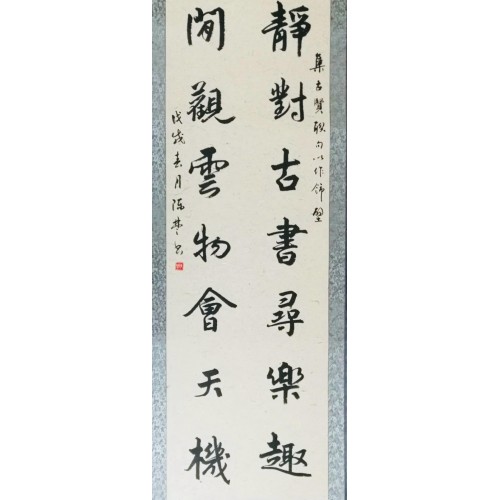 集古賢联句以作飾壁
靜對古書尋樂趣
間觀雲物會天機
戊戌春月陈书